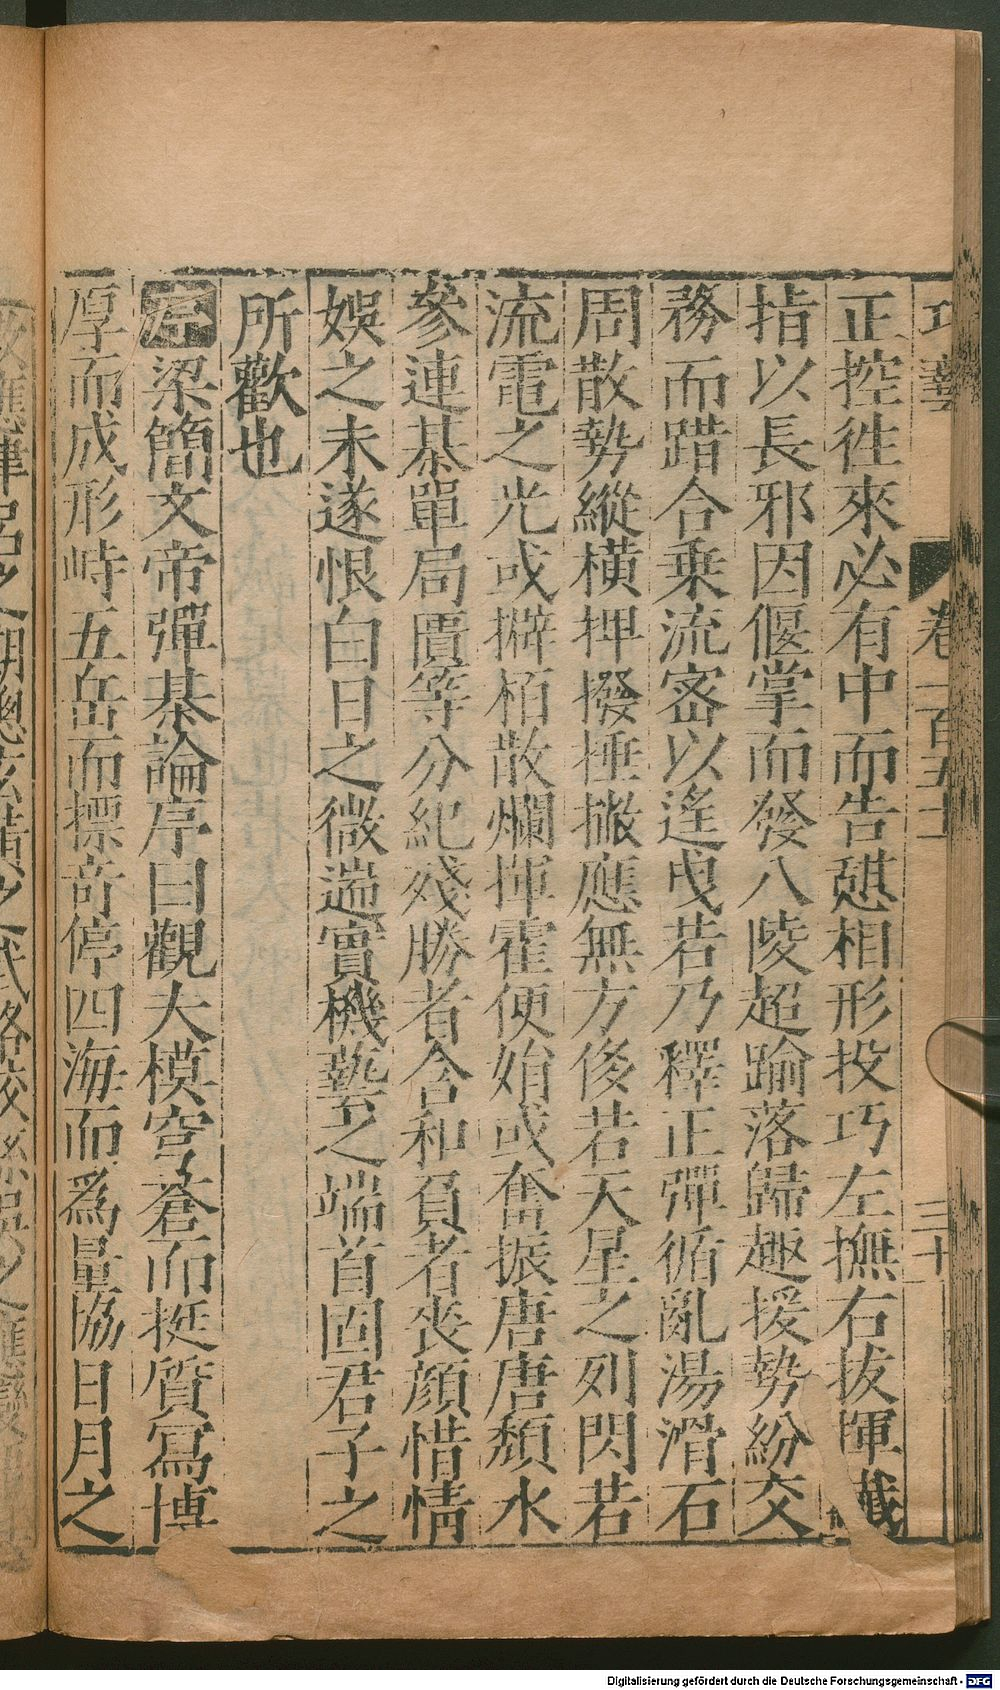 巧藝 卷一百五十 三十
正控徃來必有中而告憇相形投巧左撫右拔揮
指以長邪因偃掌而發八陵超踰落歸趣援勢紛交
務而踏合乗流密以遙曵若乃釋正彈循亂湯滑石
周散勢縱横押撥捶撇應無方後若天星之列閃若
流電之光或擗柏散爛揮霍便始或奮振唐唐頹水
參連棊單局匱等分紀殘勝者含和負者丧顔惜情
娛之未遂恨白日之微遄實機藝之端首固君子之
所歡也
序梁簡文帝彈棊論序曰觀大模穹蒼而挺質寫博
厚而成形峙五岳而標竒停四海而爲量協日月之
Digitalisierung gefördert durch die Deutsche Forschungsgemeinschaft - DFG